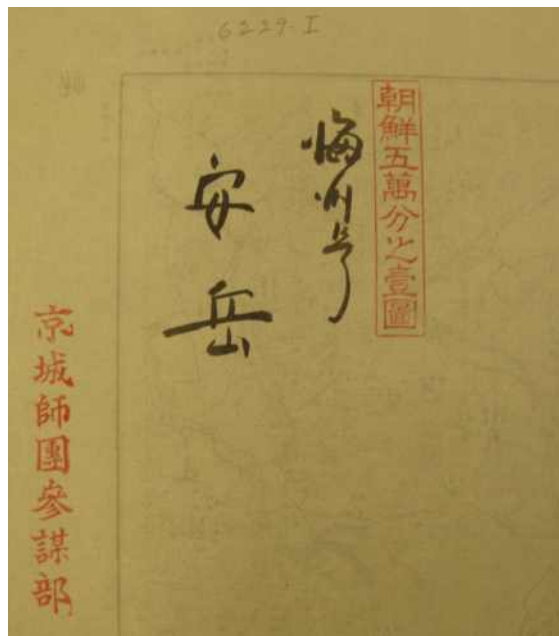 6229-I
朝鮮五萬分之壹圖
海州号
安岳
京城師團參謀部